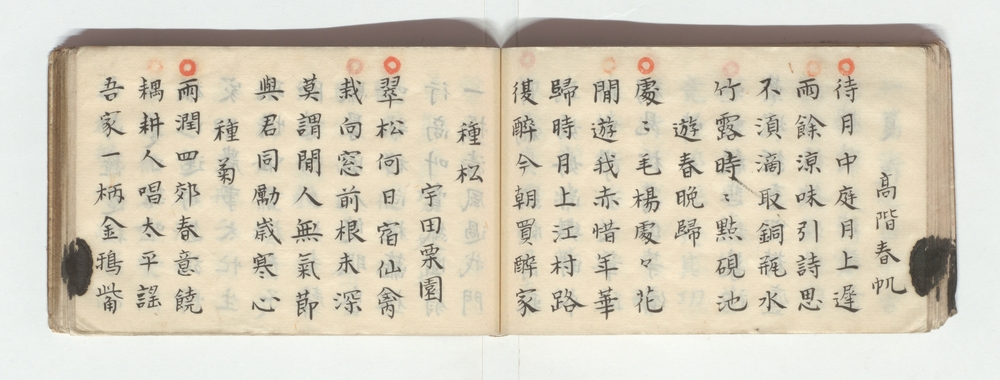 高階春帆
待月中庭月上遲
雨餘涼味引詩思
不須滴取銅瓶水
竹露時〻點硯池
遊春晚歸
處〻毛楊處々花
閒遊我亦惜年華
歸時月上江村路
復醉今朝買醉家
種松
宇田栗園
翠松何日宿仙禽
栽向窓前根未深
莫謂閒人無氣節
與君同勵歲寒心
種菊
雨潤四郊春意饒
耦耕人唱太平謠
吾家一柄金鴉觜